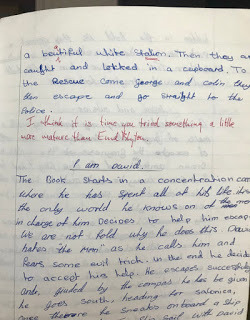 a beatiful white stalion. Then they are
caught and locked in a cupboard. To
the Rescue come george and colin they
then escape and go straight to the
Police.
I think it is time you tried something a little
more mature than Enid Blyton.
I am David.
The Book starts in a concentration cam
where he has spent all of his life
the only world he knows on of the
in charge of him Decides to help him escap
We are not told why he does this Davi
hates "the man" as he calls him and
fears some evil trick. in the end he decide
to accept his help. He escapes successfully
and, guided by the compas he has be given
he goes south, heading for salonica,
once there he sneaks onboard a ship
ship sail with David